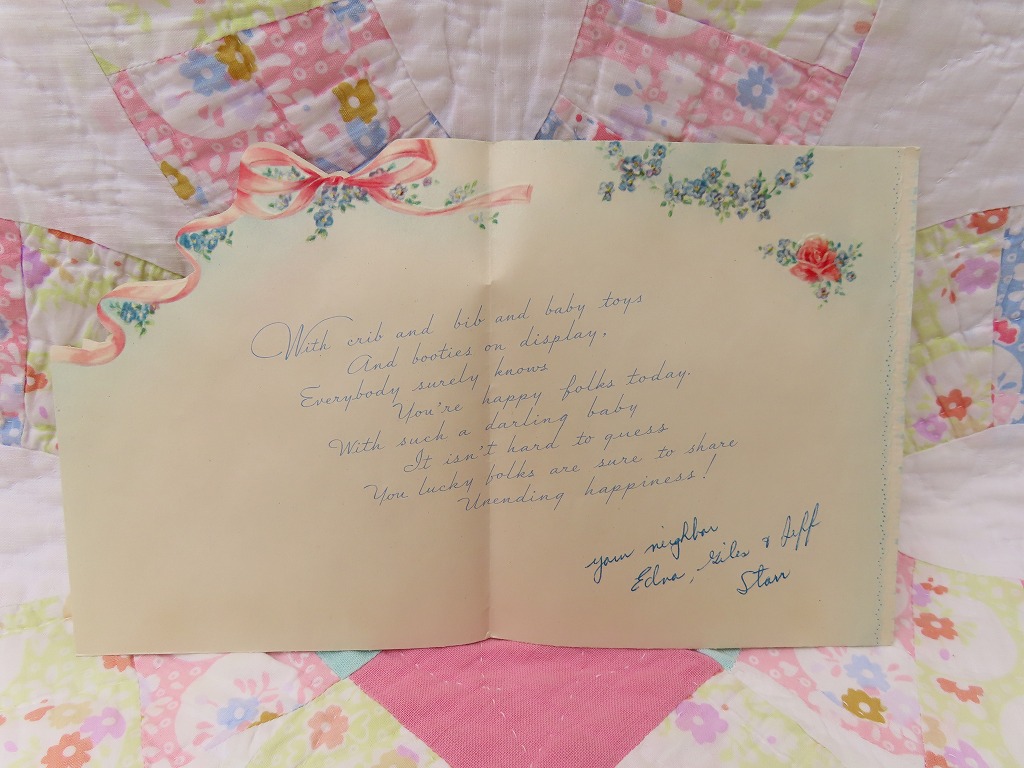 With crib and bib and baby toys
And booties on display,
Everybody surely knows
You're happy folks today.
With such a darling baby
It isn't hard to guess
You lucky folks are sure to share
Unending happiness!
your neighbor
Edna, Giles & Jeff
Starr